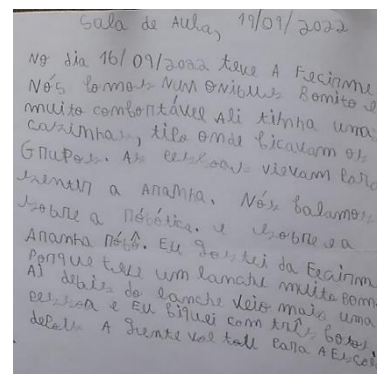 Sala de Aula, 19/09/2022
No dia 16/09/2022 teve A Fecirme
Nós fomos Num onibus Bonito e
muito comfortável Ali tinha uma
casinhas, tipo onde ficavam os
Grupos. As pessoas vievam para
sentir a Aranha. Nós falamos
sobre a róbótica. e sobre a
Aranha róbô. Eu gostei da Fecirm
Porque teve um lamche muito Bom
Aí depois do lamche veio mais uma
pessoa e Eu fiquei com três fotos,
depois A gente voltou Para A Escol